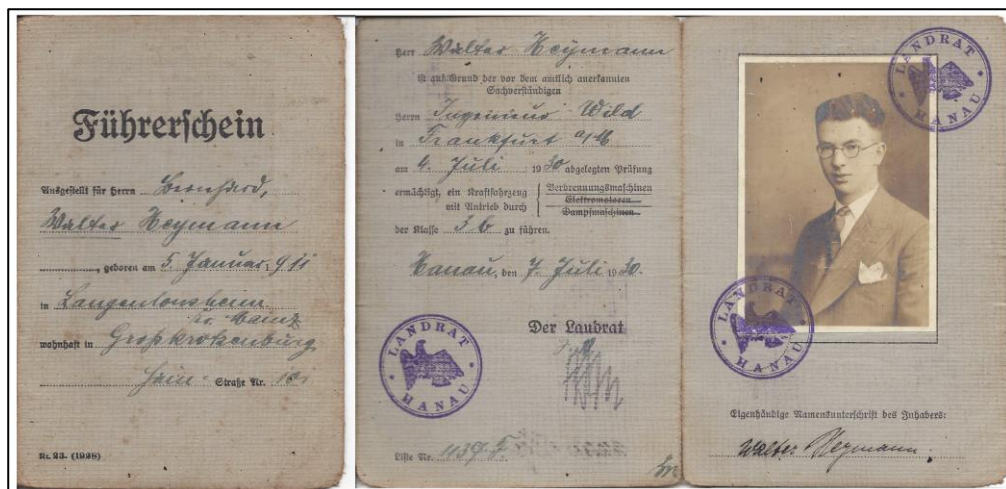 Führerschein
Ausgestellt für Herrn Bernhard,
Walter Heymann
, geboren am 5. Januar 911
in Langenlonsheim
wohnhaft in Großkrotzenburg
Straße Nr. 10
Nr. 23. (1928)
Herr Walter Heymann
ist auf Grund der vor dem amtlich anerkannten
Sachverständigen
Herrn Ingenieur Wild
in Frankfurt a/M
am 4. Juli 1930 abgelegten Prüfung
ermächtigt, ein Kraftfahrzeug
mit Antrieb durch
Verbrennungsmaschinen
Elektromotoren
Dampfmaschinen
der Klasse 3b zu führen.
Hanau, den 7. Juli 1930.
Der Landrat
LANDRAT
HANAU
Liste Nr. 1139
LANDRAT
HANAU
LANDRAT
HANAU
Eigenhändige Namensunterschrift des Inhabers:
Walter Heymann.